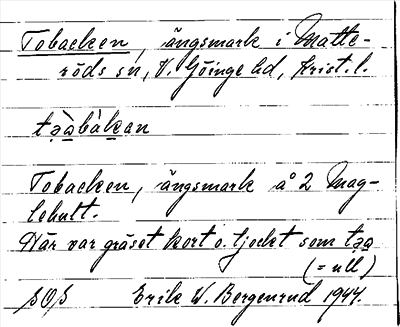 Tobacken, ängsmark i Matte-
röds sn, V. Göinge hd, Krist. l.
tǫà̱bàḵan
Tobacken, ängsmark å 2 Mag-
lehult.
Här var gräset kort o. tjockt som tǫa̱
(= ull)
SOS Erik W. Bergenrud 1944.